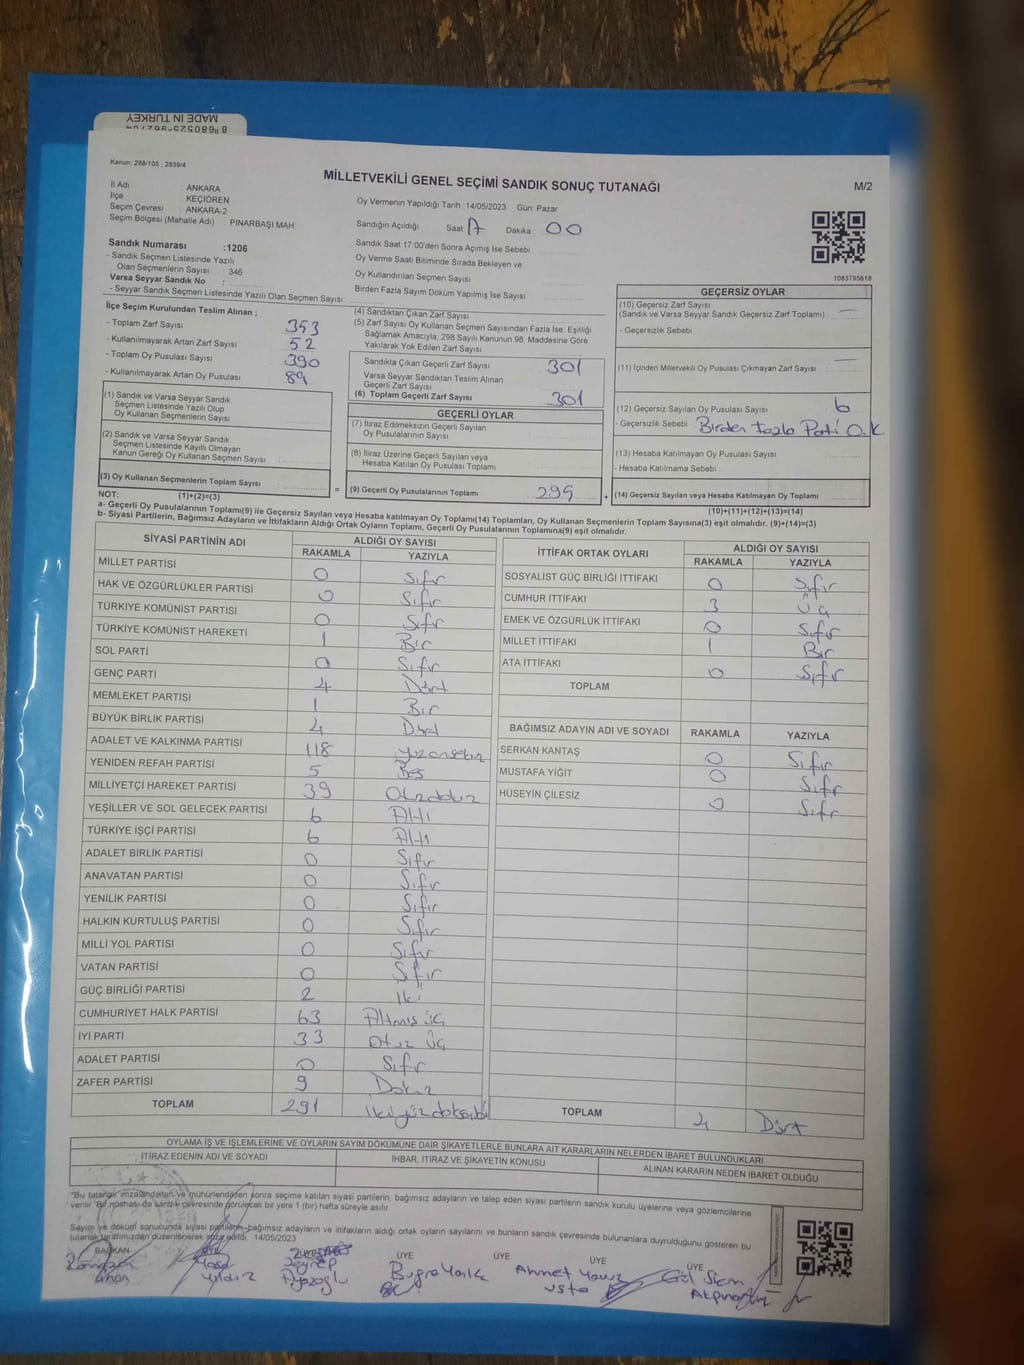 MADE IN TURKEY
Kanun; 298/105 , 2839/4
MİLLETVEKİLİ GENEL SEÇİMİ SANDIK SONUÇ TUTANAĞI
M/2
İl Adı : ANKARA
İlçe : KEÇİÖREN
Seçim Çevresi : ANKARA-2
Seçim Bölgesi (Mahalle Adı) : PINARBAŞI MAH.
Oy Vermenin Yapıldığı Tarih :14/05/2023 Gün: Pazar
Sandığın Açıldığı Saat 17 Dakika : 00
Sandık Numarası :1206
- Sandık Seçmen Listesinde Yazılı
Olan Seçmenlerin Sayısı : 346
Varsa Seyyar Sandık No :
- Seyyar Sandık Seçmen Listesinde Yazılı Olan Seçmen Sayısı:
Sandık Saat 17:00'den Sonra Açımış İse Sebebi
Oy Verme Saati Bitiminde Sırada Bekleyen ve
Oy Kullandırılan Seçmen Sayısı
Birden Fazla Sayım Döküm Yapılmış İse Sayısı
1083795618
İlçe Seçim Kurulundan Teslim Alınan ;
- Toplam Zarf Sayısı : 353
- Kullanılmayarak Artan Zarf Sayısı : 52
- Toplam Oy Pusulası Sayısı : 390
- Kullanılmayarak Artan Oy Pusulası : 89
(1) Sandık ve Varsa Seyyar Sandık
Seçmen Listesinde Yazılı Olup
Oy Kullanan Seçmenlerin Sayısı
(2) Sandık ve Varsa Seyyar Sandık
Seçmen Listesinde Kayıtlı Olmayan
Kanun Gereği Oy Kullanan Seçmen Sayısı
(3) Oy Kullanan Seçmenlerin Toplam Sayısı
(4) Sandıktan Çıkan Zarf Sayısı
(5) Zarf Sayısı Oy Kullanan Seçmen Sayısından Fazla İse, Eşitliği
Sağlamak Amacıyla, 298 Sayılı Kanunun 98. Maddesine Göre
Yakılarak Yok Edilen Zarf Sayısı
Sandıkta Çıkan Geçerli Zarf Sayısı 301
Varsa Seyyar Sandıktan Teslim Alınan
Geçerli Zarf Sayısı
(6) Toplam Geçerli Zarf Sayısı 301
GEÇERLİ OYLAR
(7) İtiraz Edilmeksizin Geçerli Sayılan
Oy Pusulalarının Sayısı
(8) İtiraz Üzerine Geçerli Sayılan veya
Hesaba Katılan Oy Pusulası Toplamı
= (9) Geçerli Oy Pusulalarının Toplamı 295
GEÇERSİZ OYLAR
(10) Geçersiz Zarf Sayısı
(Sandık ve Varsa Seyyar Sandık Geçersiz Zarf Toplamı) : —
- Geçersizlik Sebebi
(11) İçinden Milletvekili Oy Pusulası Çıkmayan Zarf Sayısı : —
(12) Geçersiz Sayılan Oy Pusulası Sayısı : 6
- Geçersizlik Sebebi : Birden fazla Parti O.K
(13) Hesaba Katılmayan Oy Pusulası Sayısı
- Hesaba Katılmama Sebebi
+ (14) Geçersiz Sayılan veya Hesaba Katılmayan Oy Toplamı
NOT: (1)+(2)=(3)
(10)+(11)+(12)+(13)=(14)
a- Geçerli Oy Pusulalarının Toplamı(9) ile Geçersiz Sayılan veya Hesaba katılmayan Oy Toplamı(14) Toplamları, Oy Kullanan Seçmenlerin Toplam Sayısına(3) eşit olmalıdır. (9)+(14)=(3)
b- Siyasi Partilerin, Bağımsız Adayların ve İttifakların Aldığı Ortak Oyların Toplamı, Geçerli Oy Pusulalarının Toplamına(9) eşit olmalıdır.
SİYASİ PARTİNİN ADI ALDIĞI OY SAYISI
RAKAMLA YAZIYLA
MİLLET PARTİSİ 0 Sıfır
HAK VE ÖZGÜRLÜKLER PARTİSİ 0 Sıfır
TÜRKİYE KOMÜNİST PARTİSİ 0 Sıfır
TÜRKİYE KOMÜNİST HAREKETİ 1 Bir
SOL PARTİ 0 Sıfır
GENÇ PARTİ 4 Dört
MEMLEKET PARTİSİ 1 Bir
BÜYÜK BİRLİK PARTİSİ 4 Dört
ADALET VE KALKINMA PARTİSİ 118 Yüzonsekiz
YENİDEN REFAH PARTİSİ 5 Beş
MİLLİYETÇİ HAREKET PARTİSİ 39 Otuzdokuz
YEŞİLLER VE SOL GELECEK PARTİSİ 6 Altı
TÜRKİYE İŞÇİ PARTİSİ 6 Altı
ADALET BİRLİK PARTİSİ 0 Sıfır
ANAVATAN PARTİSİ 0 Sıfır
YENİLİK PARTİSİ 0 Sıfır
HALKIN KURTULUŞ PARTİSİ 0 Sıfır
MİLLİ YOL PARTİSİ 0 Sıfır
VATAN PARTİSİ 0 Sıfır
GÜÇ BİRLİĞİ PARTİSİ 2 İki
CUMHURİYET HALK PARTİSİ 63 Altmış üç
İYİ PARTİ 33 Otuz Üç
ADALET PARTİSİ 0 Sıfır
ZAFER PARTİSİ 9 Dokuz
TOPLAM 291 ikiyüzdoksanbir
İTTİFAK ORTAK OYLARI ALDIĞI OY SAYISI
RAKAMLA YAZIYLA
SOSYALİST GÜÇ BİRLİĞİ İTTİFAKI 0 Sıfır
CUMHUR İTTİFAKI 3 Üç
EMEK VE ÖZGÜRLÜK İTTİFAKI 0 Sıfır
MİLLET İTTİFAKI 1 Bir
ATA İTTİFAKI 0 Sıfır
TOPLAM
BAĞIMSIZ ADAYIN ADI VE SOYADI RAKAMLA YAZIYLA
SERKAN KANTAŞ 0 Sıfır
MUSTAFA YİĞİT 0 Sıfır
HÜSEYİN ÇİLESİZ 0 Sıfır
TOPLAM 4 Dört
OYLAMA İŞ VE İŞLEMLERİNE VE OYLARIN SAYIM DÖKÜMÜNE DAİR ŞİKAYETLERLE BUNLARA AİT KARARLARIN NELERDEN İBARET BULUNDUKLARI
İTİRAZ EDENİN ADI VE SOYADI
İHBAR, İTİRAZ VE ŞİKAYETİN KONUSU
ALINAN KARARIN NEDEN İBARET OLDUĞU
*Bu tutanak imzalandıktan ve mühürlendikten sonra seçime katılan siyasi partilerin, bağımsız adayların ve talep eden siyasi partilerin sandık kurulu üyelerine veya gözlemcilerine
verilir. Bir nüshası da sandık çevresinde görülecek bir yere 1 (bir) hafta süreyle asılır.
Sayım ve döküm sonucunda siyasi partilerin, bağımsız adayların ve ittifakların aldığı ortak oyların sayılarını ve bunların sandık çevresinde bulunanlara duyrulduğunu gösteren bu
tutanak tarafımızdan düzenlenerek imza edildi. 14/05/2023
BAŞKAN ÜYE ÜYE ÜYE ÜYE
Ramazan
Yıldız
Zeynep
Ahmet Yavuz
Usta